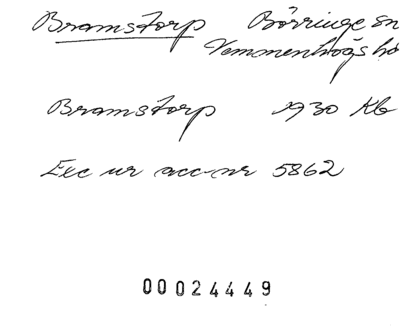 Bramstorp Börringe sn
Vemmenhögs hd
Bramstorp 1930 Kb
Exc ur acc-nr 5862
00024449